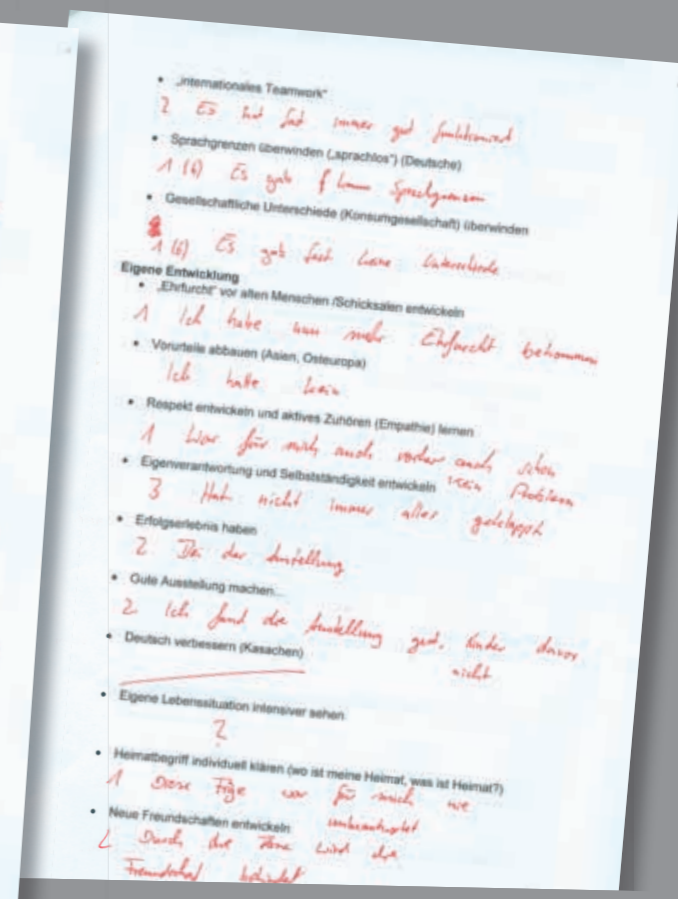 • „internationales Teamwork“
2 Es hat fast immer gut funktioniert
• Sprachgrenzen überwinden („sprachlos“) (Deutsche)
1 (6) Es gab kaum Sprachgrenzen
• Gesellschaftliche Unterschiede (Konsumgesellschaft) überwinden
1 (6) Es gab fast keine Unterschiede
Eigene Entwicklung
• „Ehrfurcht“ vor alten Menschen /Schicksalen entwickeln
1 Ich habe nun mehr Ehrfurcht bekommen
• Vorurteile abbauen (Asien, Osteuropa)
Ich hatte kein
• Respekt entwickeln und aktives Zuhören (Empathie) lernen
1 War für mich auch vorher auch schon
kein Problem
• Eigenverantwortung und Selbstständigkeit entwickeln
3 Hat nicht immer alles geklappt
• Erfolgserlebnis haben
2 Bei der Austellung
• Gute Ausstellung machen...
2 Ich fand die Austellung gut, davor
nicht
• Deutsch verbessern (Kasachen)
• Eigene Lebenssituation intensiver sehen
2
• Heimatbegriff individuell klären (wo ist meine Heimat, was ist Heimat?)
1 Diese Frage war für mich nie
unbeantwortet
• Neue Freundschaften entwickeln
Durch die wird die
Freundschaft